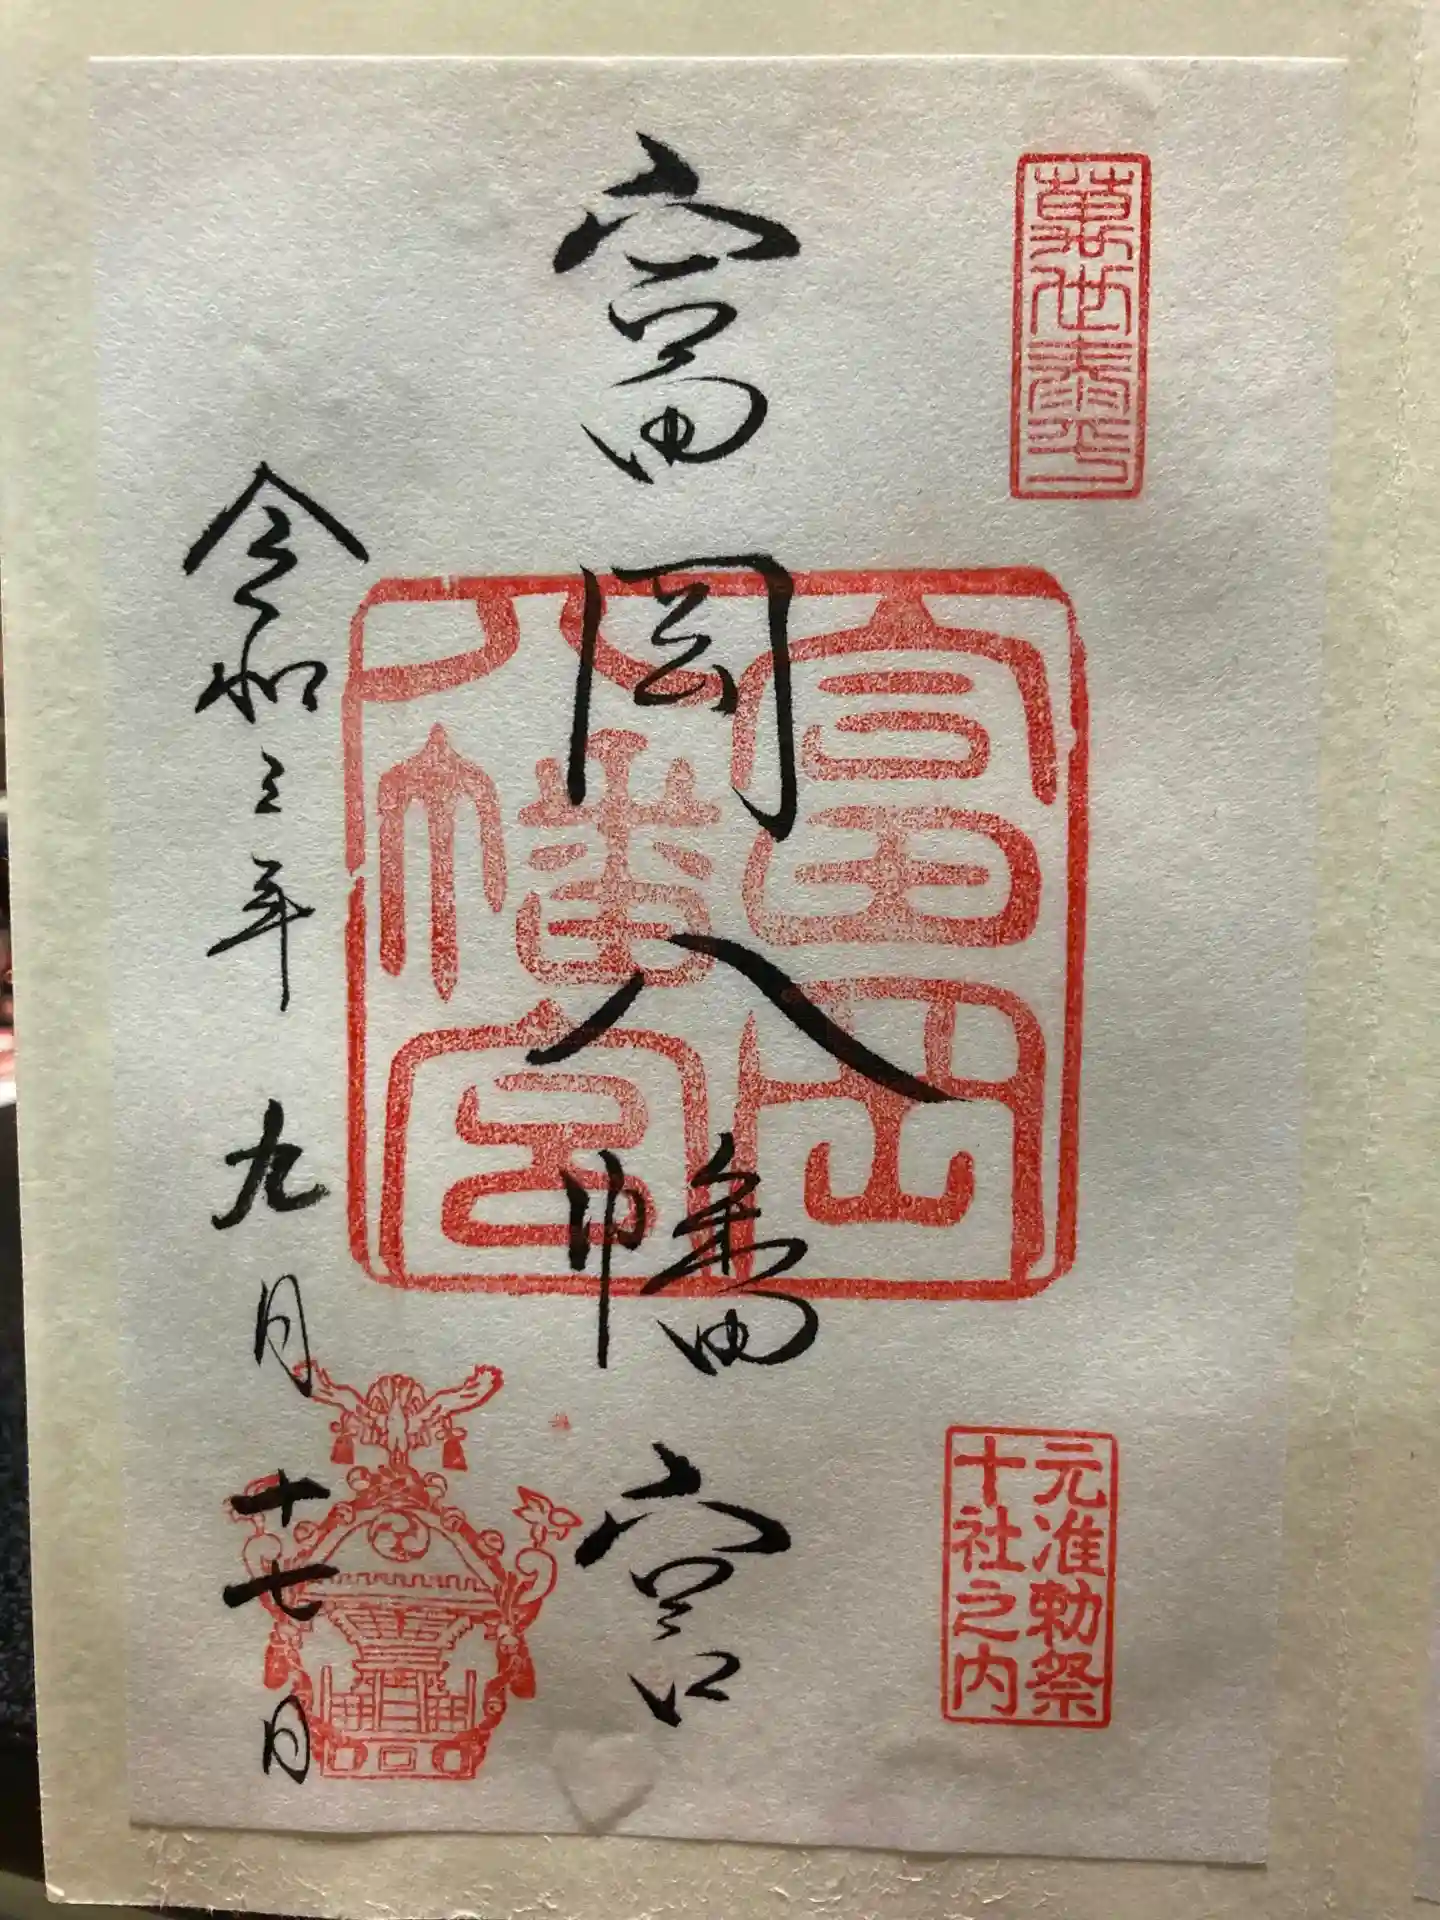 萬世泰平
富岡八幡宮
富岡
八幡宮
元准勅祭
十社之内
令和三年九月十七日